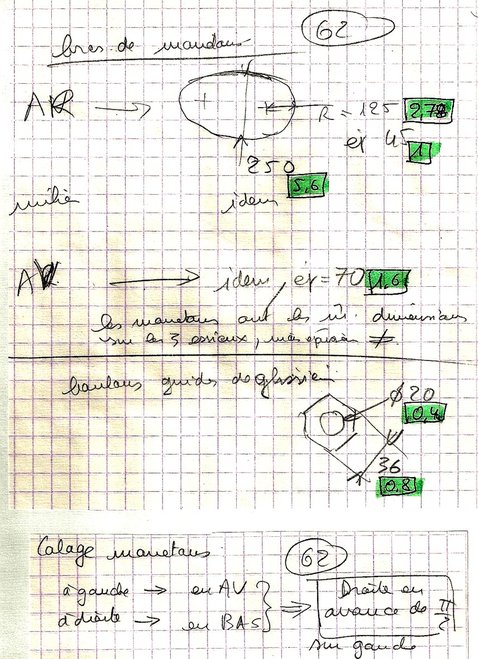 62
bras de manetons
AR → R = 125 2,78
ép 45 1
250 5,6
milieu idem
AV → idem, ép = 70 1,6
les manetons ont les m. dimensions
sur les 3 essieux, mais épaisseur ≠.
boulons guides de glissière
ø 20
0,4
36
0,8
Calage manetons 62
à gauche → en AV
à droite → en BAS
⇒ Droite en
avance de π/2
sur gauche